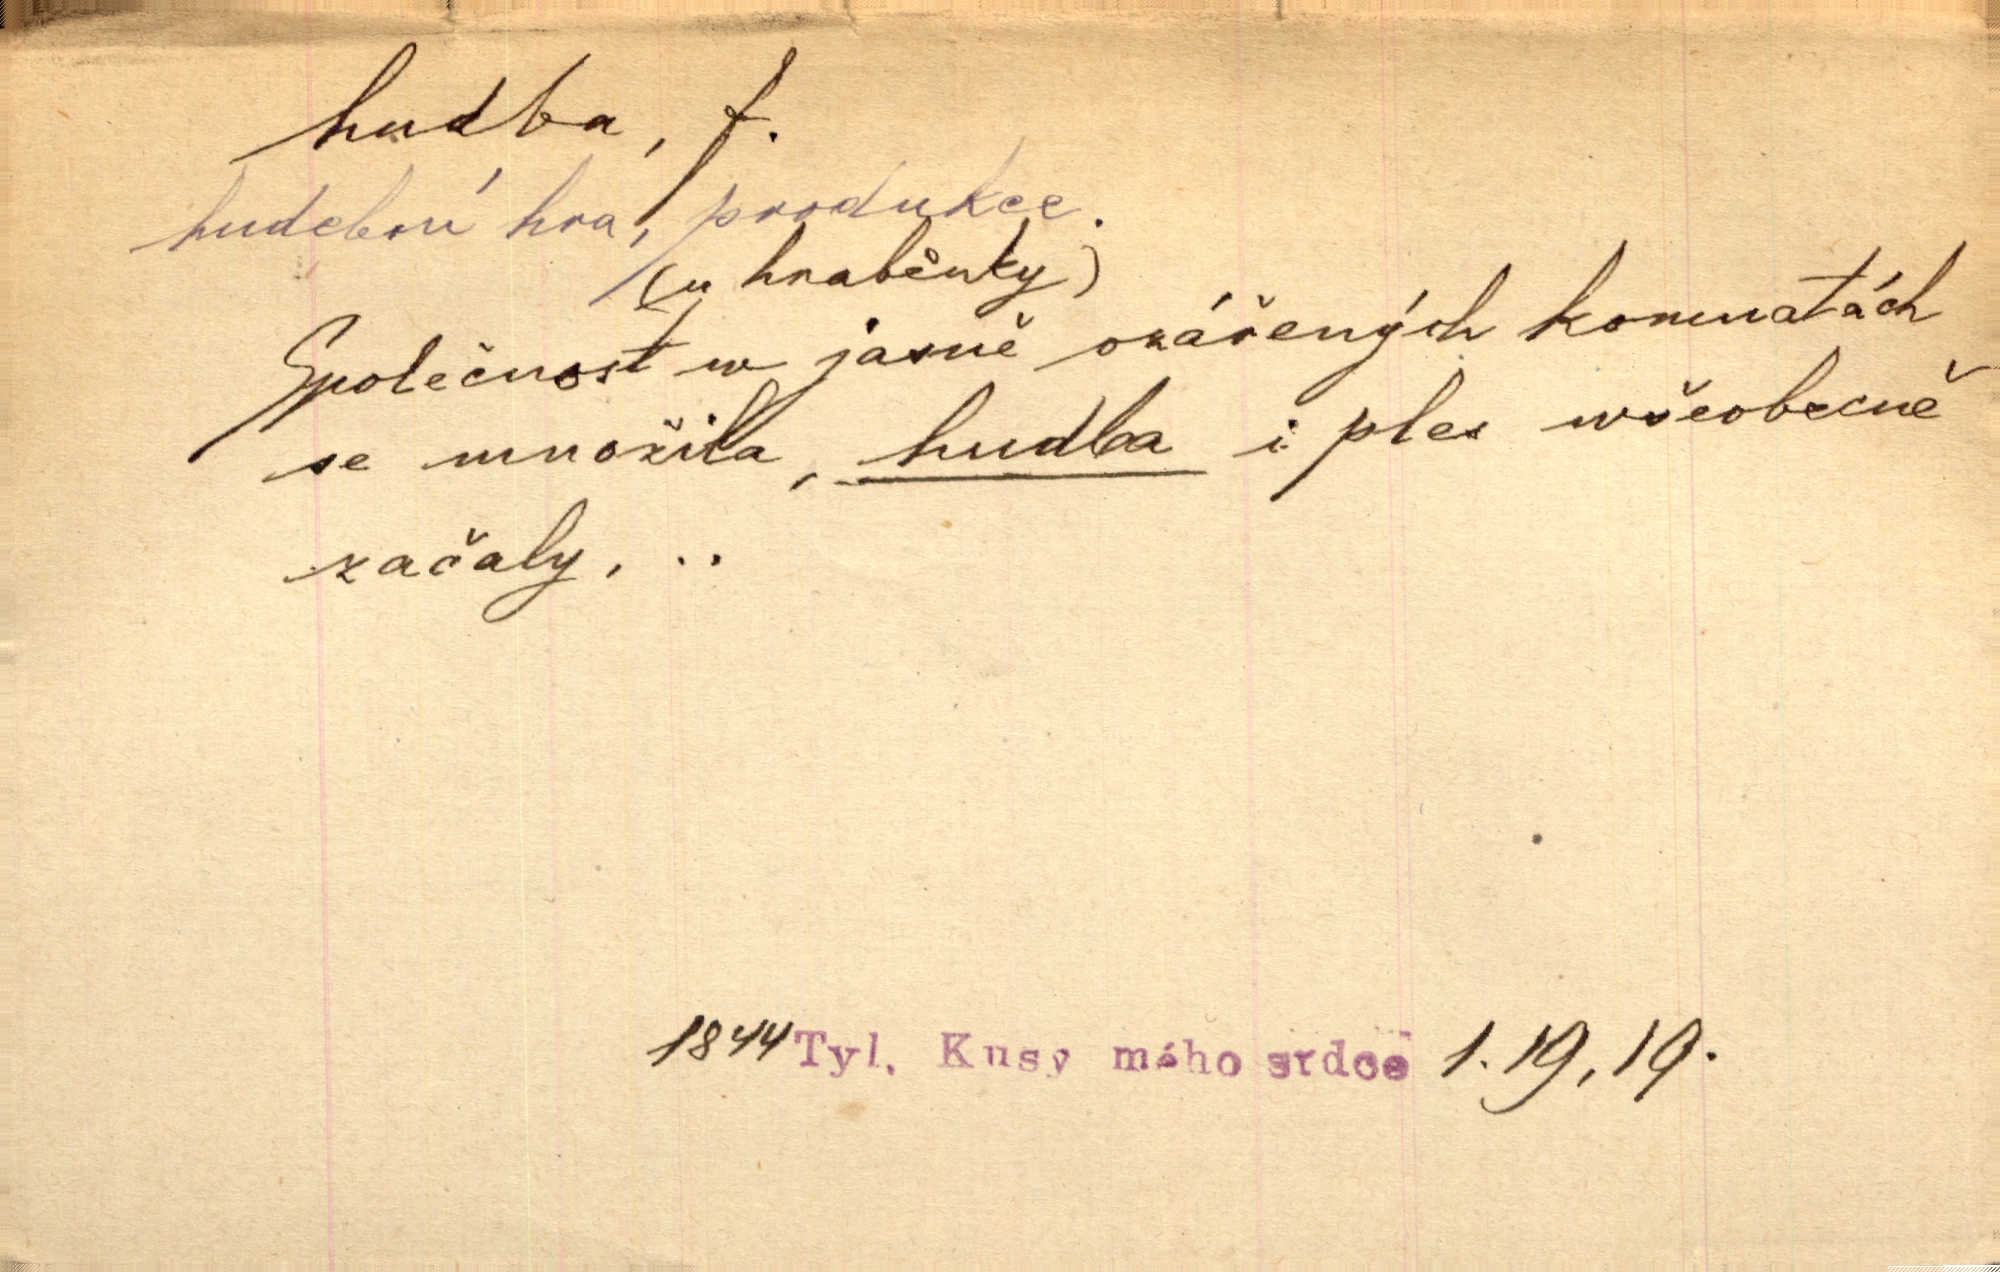 hudba, f.
hudební hra, produkce.
(u hraběnky)
Společnost w jasně ozářených komnatách
se množila, hudba i ples wšeobecně
začaly, ..
1844 Tyl. Kusy mého srdce 1. 19, 19.